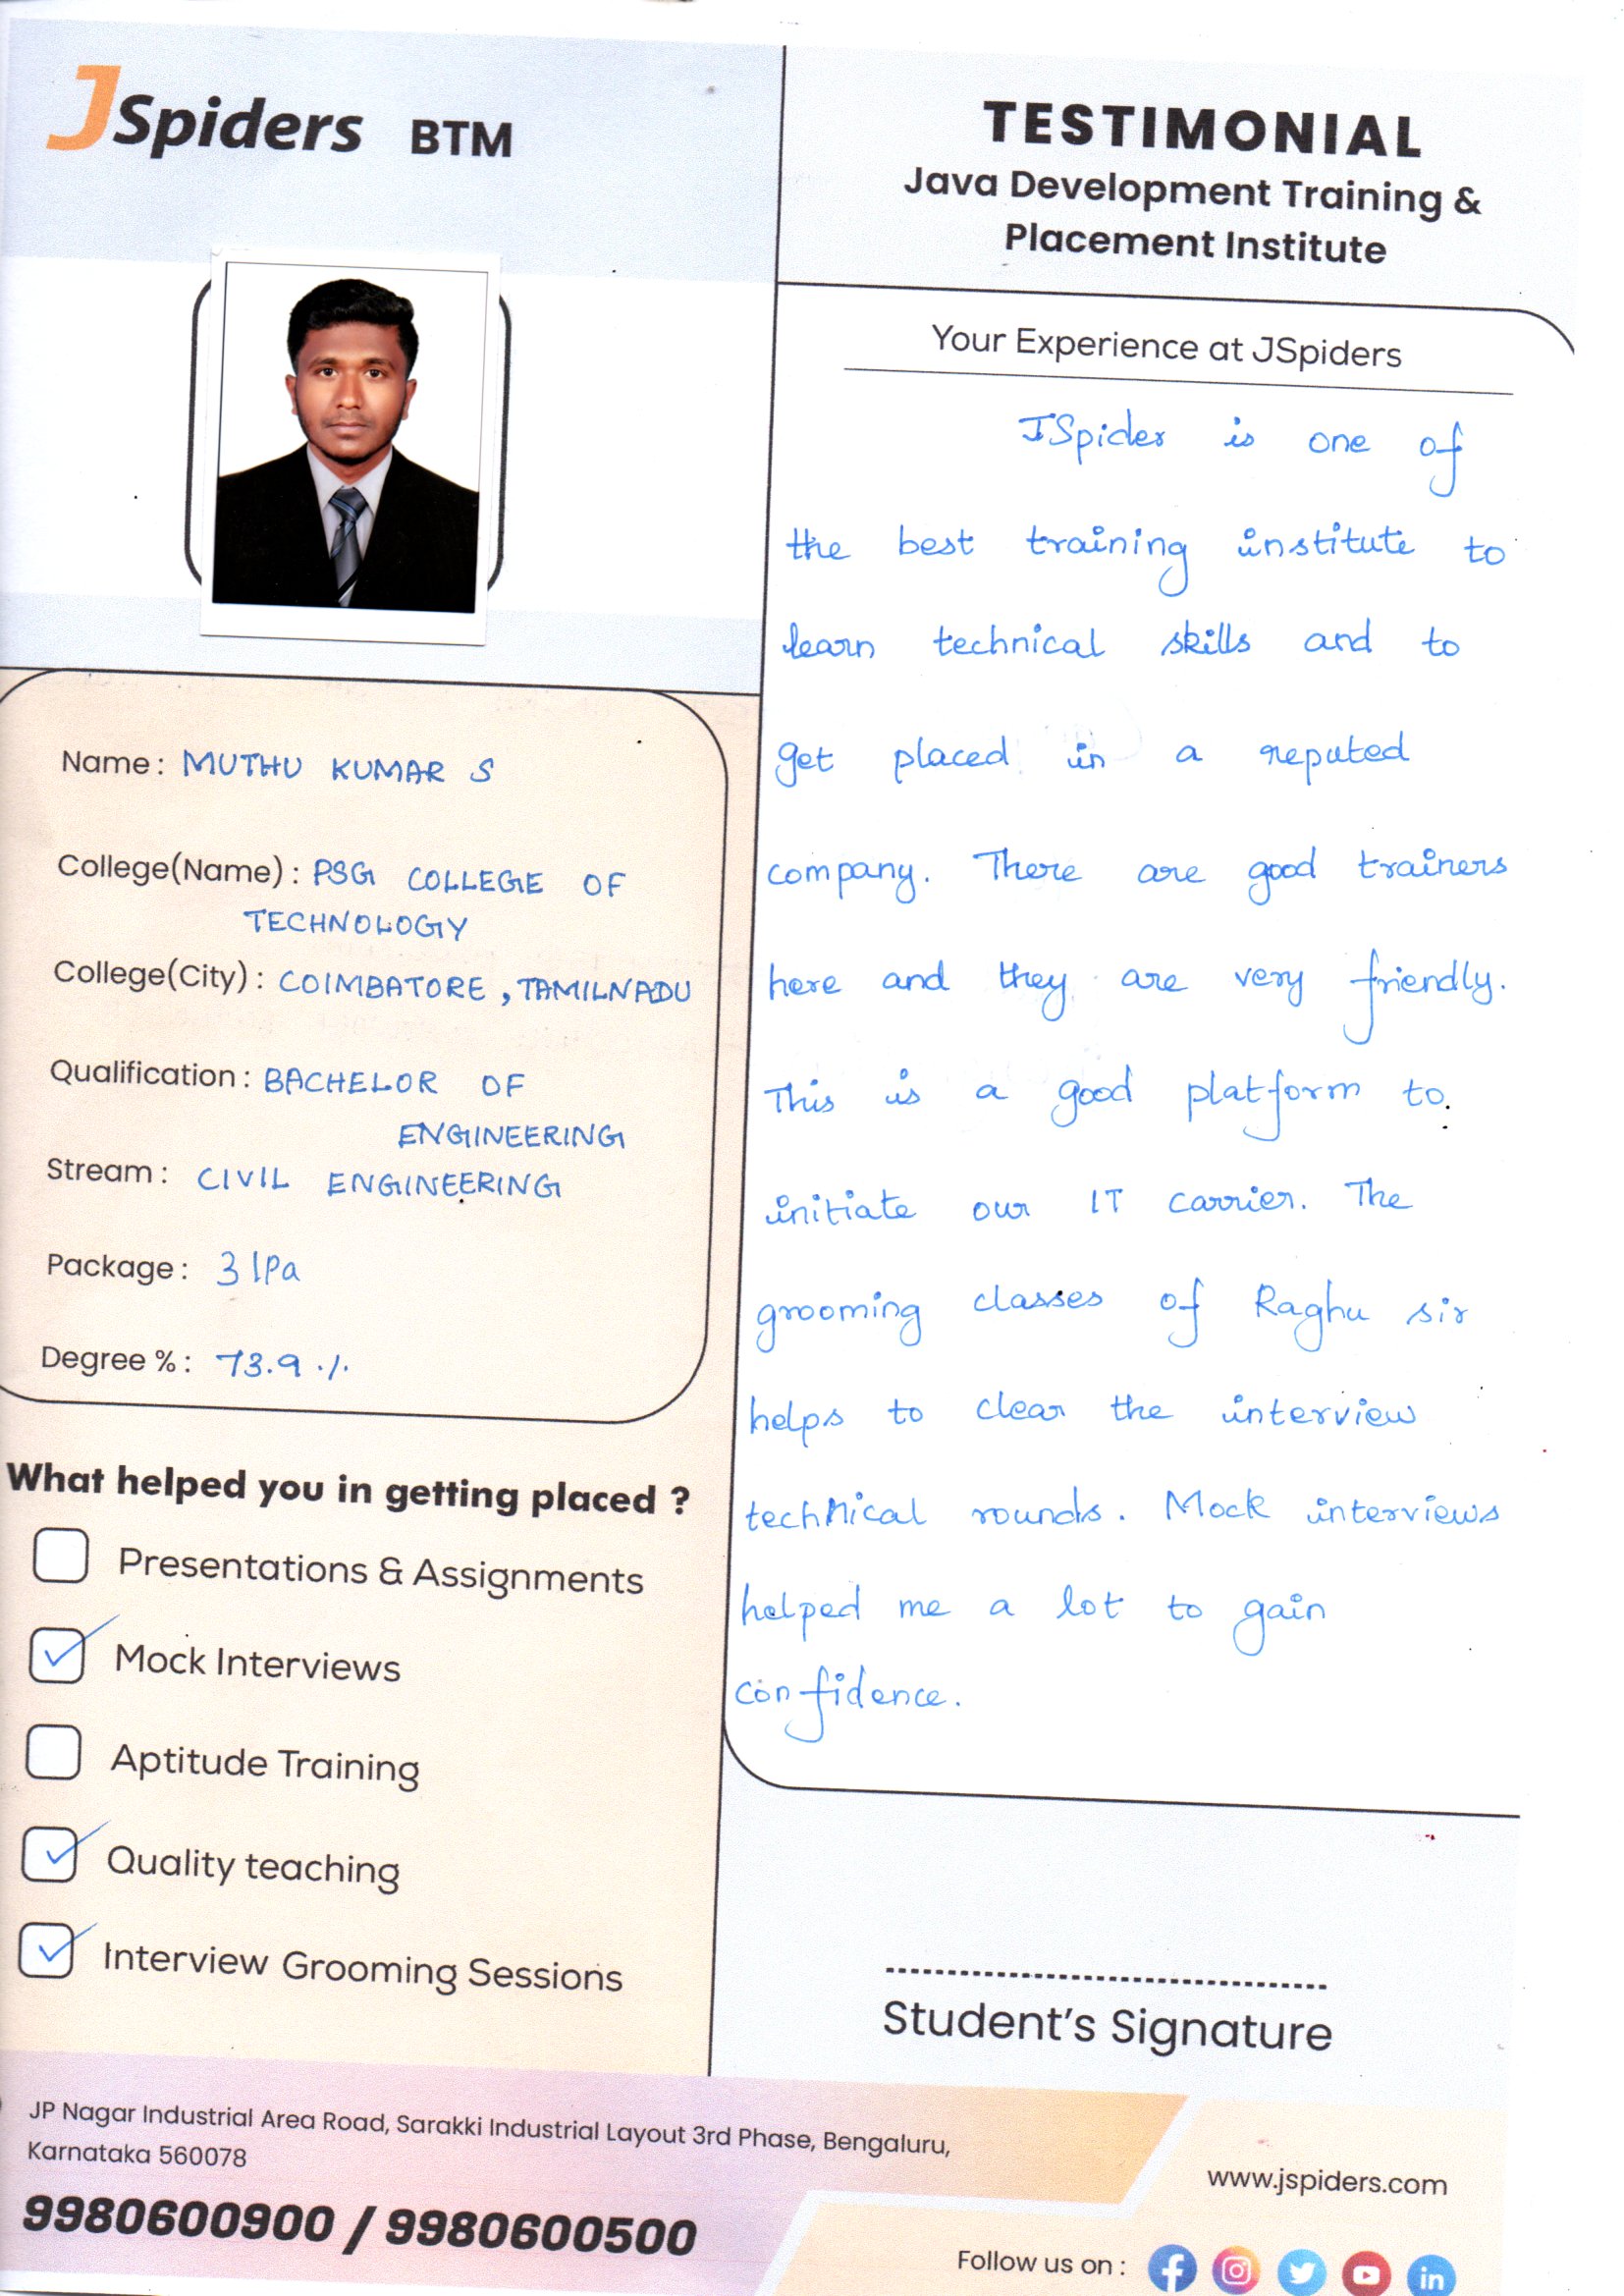 JSpiders BTM
TESTIMONIAL
Java Development Training &
Placement Institute
Name: MUTHU KUMAR S
College(Name): PSG COLLEGE OF
TECHNOLOGY
College(City): COIMBATORE, TAMILNADU
Qualification: BACHELOR OF
ENGINEERING
Stream: CIVIL ENGINEERING
Package: 3 lPa
Degree %: 73.9 %
What helped you in getting placed ?
Presentations & Assignments
Mock Interviews
Aptitude Training
Quality teaching
Interview Grooming Sessions
Your Experience at JSpiders
JSpider is one of
the best training institute to
learn technical skills and to
get placed in a reputed
company. There are good trainers
here and they are very friendly.
This is a good platform to.
initiate our IT carrier. The
grooming classes of Raghu sir
helps to clear the interview
technical rounds. Mock interviews
helped me a lot to gain
confidence.
Student's Signature
JP Nagar Industrial Area Road, Sarakki Industrial Layout 3rd Phase, Bengaluru,
Karnataka 560078
9980600900 / 9980600500
www.jspiders.com
Follow us on :